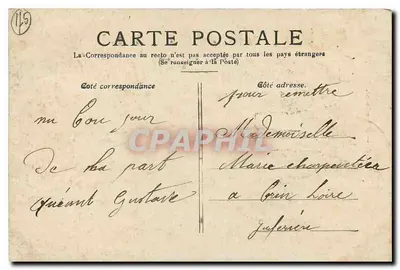 115
CARTE POSTALE
La Correspondance au recto n'est pas acceptée par tous les pays étrangers
(Se renseigner à la Poste)
Côté correspondance
Côté adresse.
un Bon jour
de ma part
Gustave
pour remettre
Mademoiselle
Marie Charpentier
a Loire
Inferiere